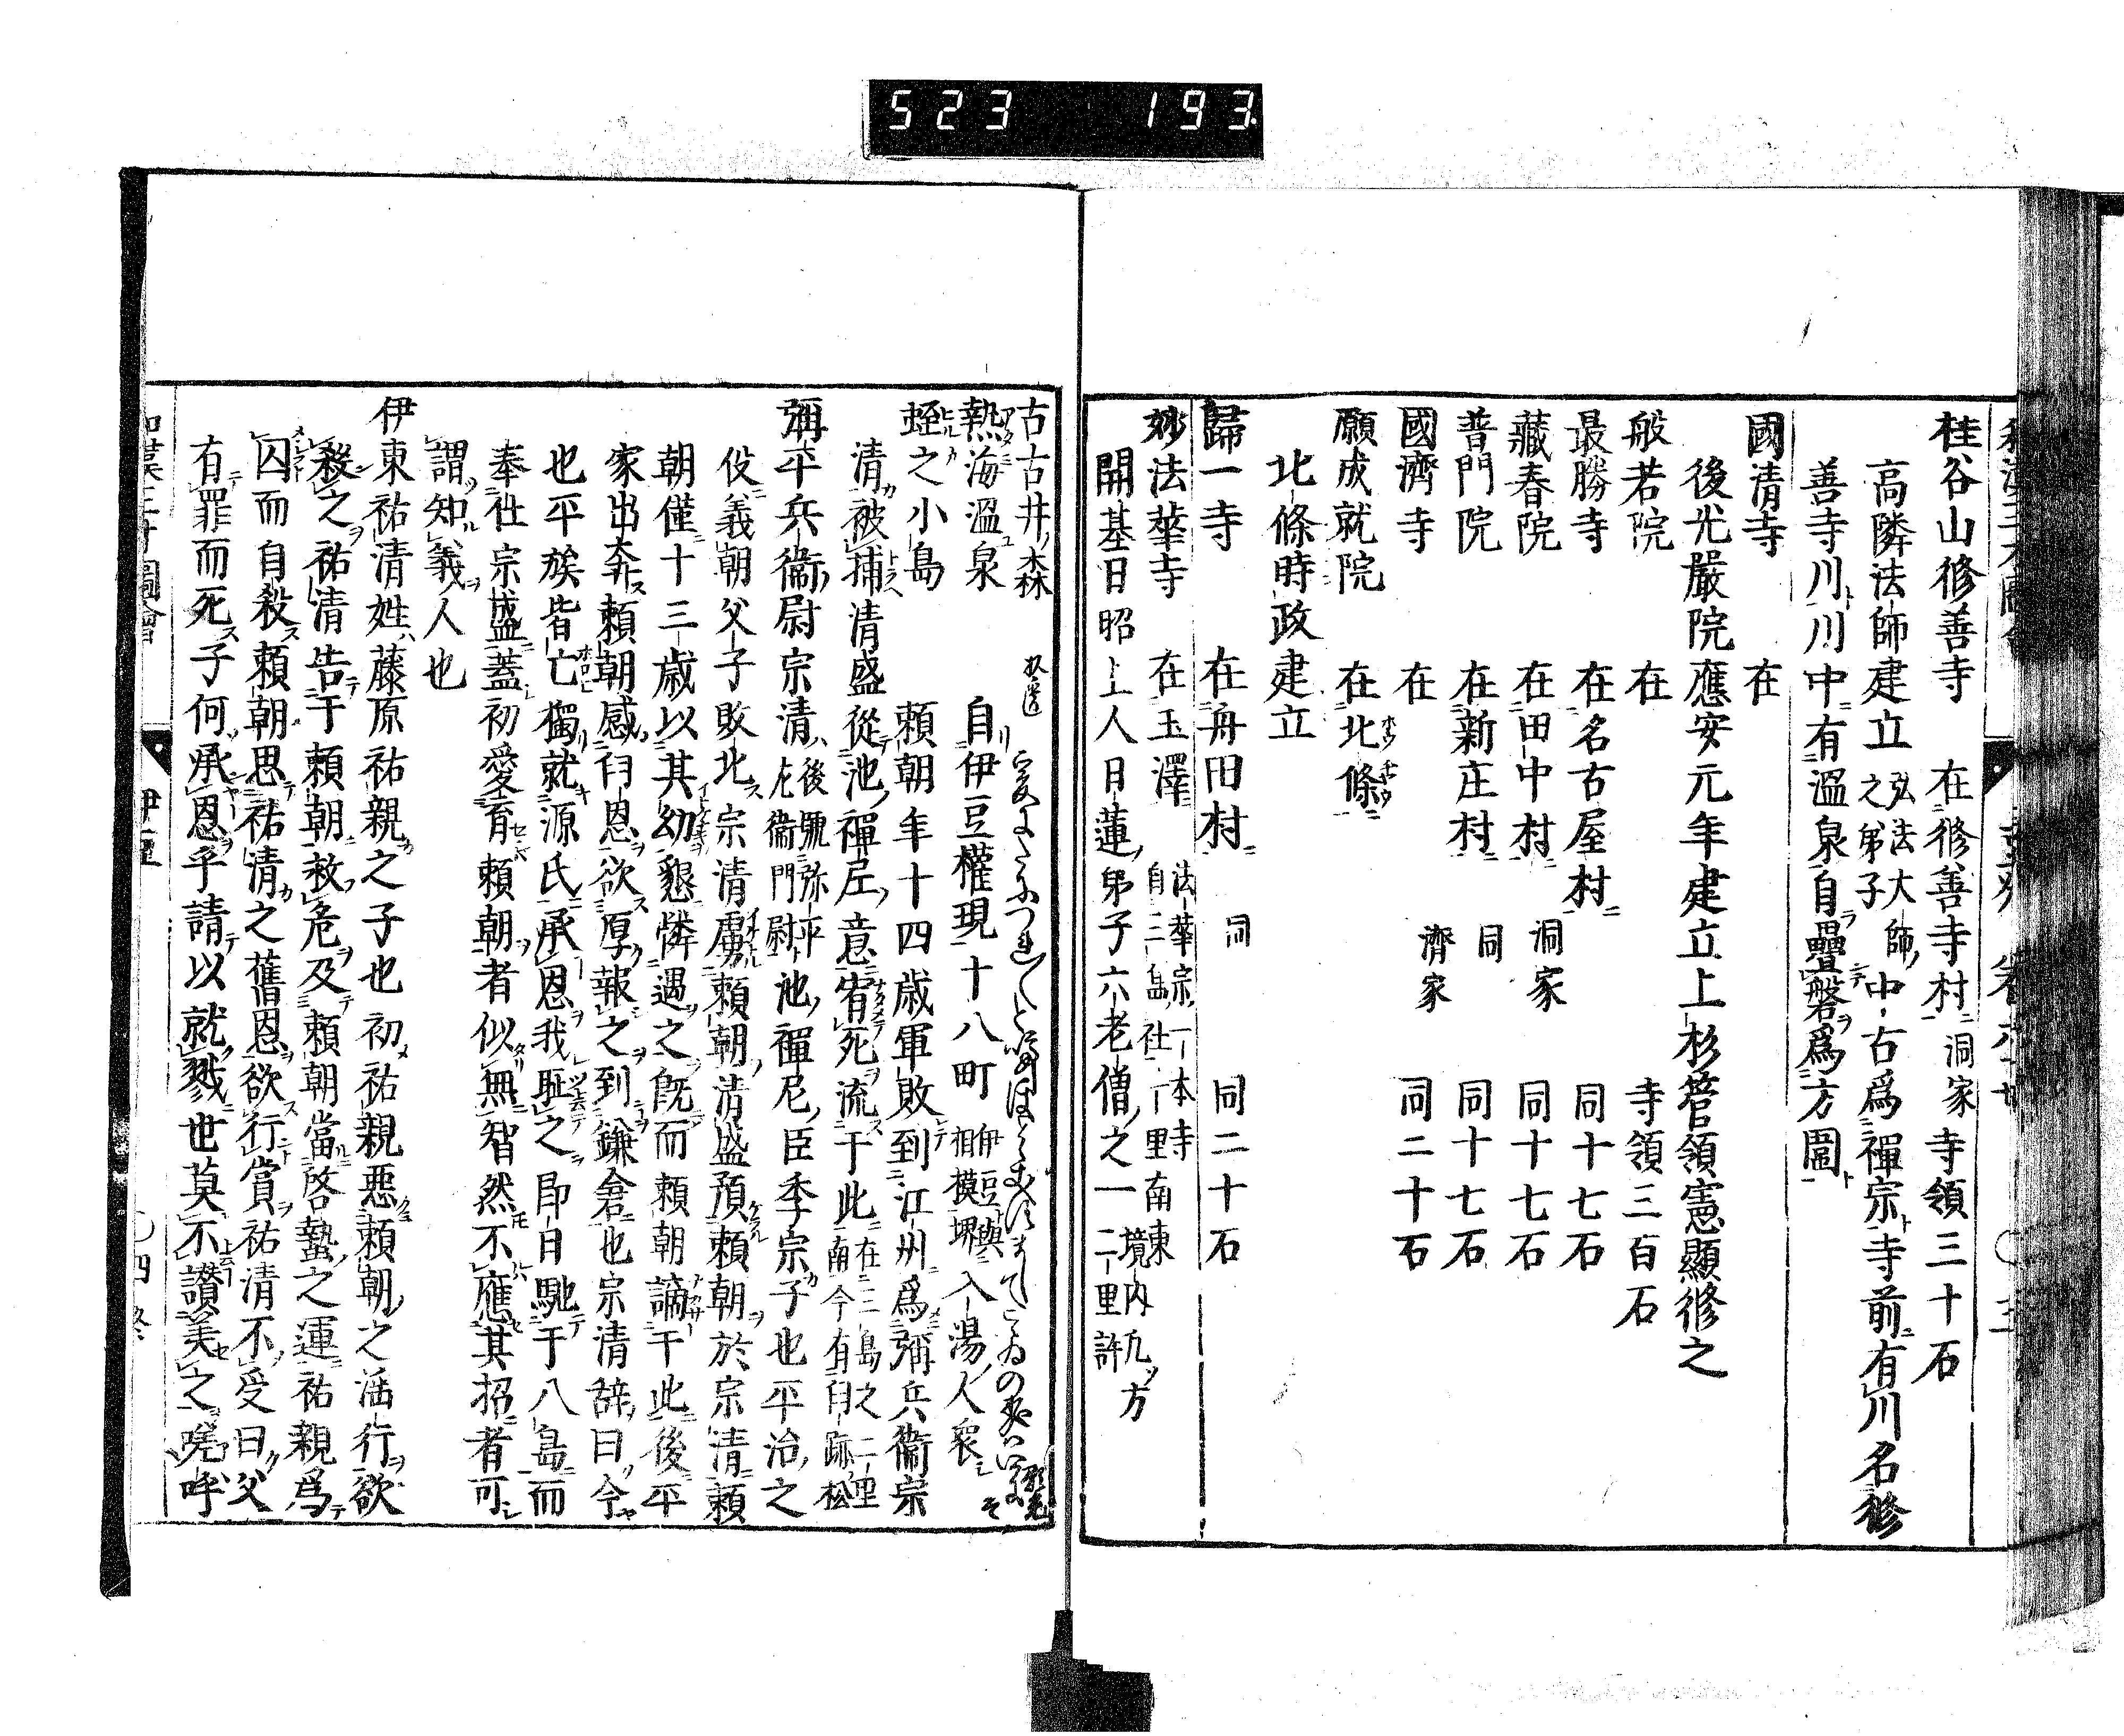 523 193
桂谷山修善寺 在修善寺村 洞家 寺領三十石
高隣法師建立 弘法大師之弟子 中古爲禪宗寺前有川名修
善寺川川中有溫泉自疊磐爲方圍
國清寺 在
後光嚴院應安元年建立上杉管領憲顯修之
般若院 在 寺領三百石
最勝寺 在名古屋村 同十七石
藏春院 在田中村 洞家 同十七石
普門院 在新庄村 同 同十七石
國濟寺 在 濟家 同二十石
願成就院 在北條
北條時政建立
歸一寺 在舟田村 同 同二十石
妙法華寺 在玉澤 法華宗一本寺 自三島社一里南東 境内九方
開基日昭上人日蓮弟子六老僧之一 二里許
古古井森 拾遺
熱海溫泉 自伊豆權現十八町 伊豆與相摸堺 入湯人衆
蛭之小島 賴朝年十四歳軍敗到江州爲彌兵衞宗
清被捕清盛從池禪尼意宥死流于此 在三島之二里南今有臼跡松
彌平兵衞尉宗清 後號弥平左衞門尉 池禪尼臣季宗子也平治之
役義朝父子敗北宗清虜賴朝清盛預賴朝於宗清賴
朝僅十三歳以其幼懇憐遇之既而賴朝謫干此後平
家出奔賴朝感旧恩欲厚報之到鎌倉也宗清辞曰今
也平族皆亡獨就源氏承恩我耻之即日馳于八島而
奉仕宗盛蓋初愛育賴朝者似無智然不應其招者可
謂知義人也
伊東祐清姓藤原祐親之子也初祐親惡賴朝之滛行欲
殺之祐清告于賴朝救危及賴朝當啓蟄之運祐親爲
囚而自殺賴朝思祐清之舊恩欲行賞祐清不受曰父
有罪而死子何承恩乎請以就戮也莫不讃美之嗟呼
伊豆 〇四終